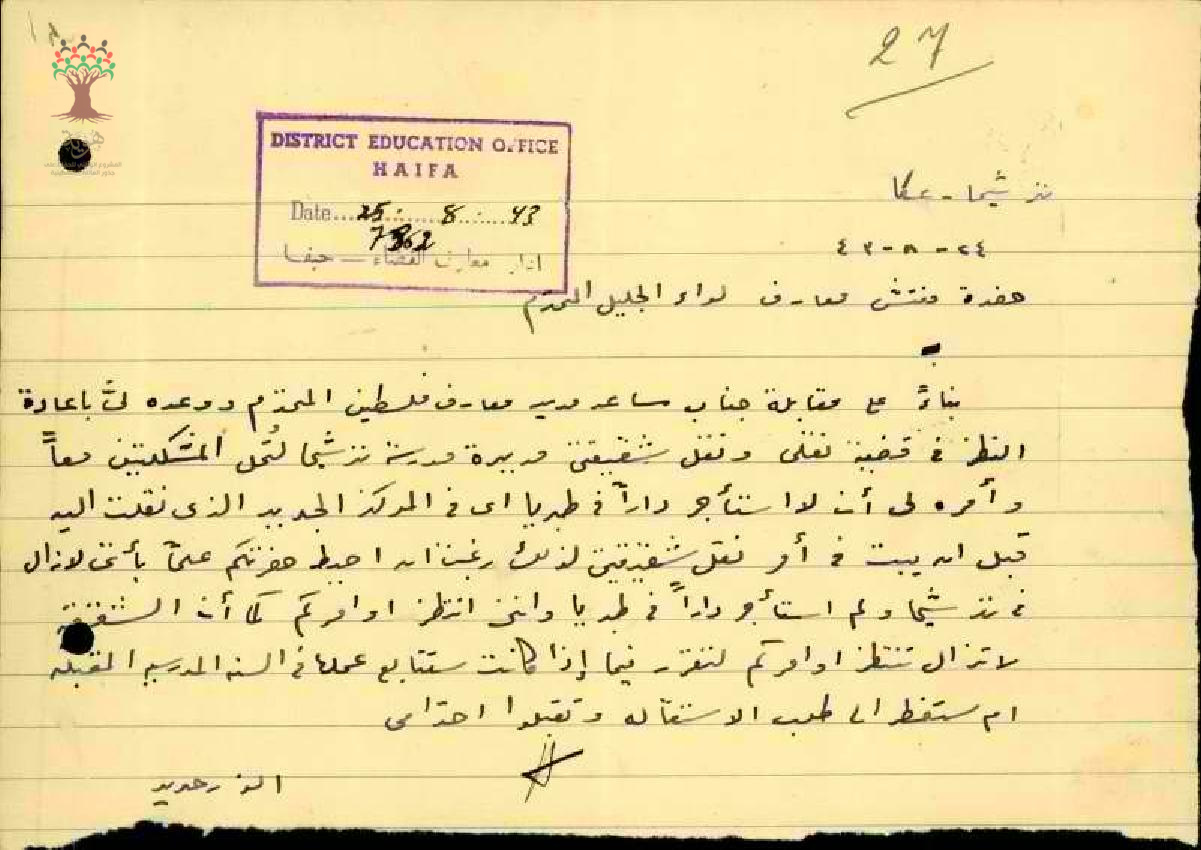 27
DISTRICT EDUCATION OFFICE
HAIFA
Date... 25 : 8 : 43
7862
ادارة معارف القضاء — حيفا
ترشيحا - عكا
٢٤ - ٨ - ٤٣
حضرة مفتش معارف لواء الجليل المحترم
بناءً على مقابلة جناب مساعد مدير معارف فلسطين المحترم ووعده لي باعادة
النظر في قضية نقلي ونقل شقيقتي مديرة مدرسة ترشيحا لتُحل المشكلتين معاً
وأمره لي أن لا استأجر داراً في طبريا اي في المركز الجديد الذي نقلت اليه
قبل ان يبت في أمر نقل شقيقتي لذلك رغبت ان احيط حضرتكم علماً بأنني لا ازال
في ترشيحا ولم استأجر داراً في طبريا وانني انتظر اوامركم كما أن الشقيقة
لا تزال تنتظر اوامركم لتقرر فيما إذا كانت ستتابع عملها في السنه المدرسيه المقبله
ام ستضطر الى طلب الاستقاله وتقبلوا احترامي